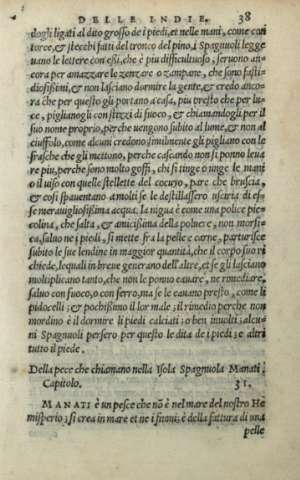 DELLE INDIE. 38
dogli ligati al dito grosso de i piedi, et nelle mani, come con
torce, & stecchi fatti del tronco del pino, i Spagnuoli legge
uano le lettere con eßi, che è piu difficultuoso, seruono an-
cora per amazzare le zenzare o zampare, che sono fasti-
diosißimi, & non lasciano dormire la gente, & credo anco-
ra che per questo gli portano a casa, piu presto che per lu-
ce, pigliano gli con stizzi di fuoco, & chiamandogli per il
suo nome proprio, perche uengono subito al lume, & non al
ciuffolo, come alcuni credono, similmente gli pigliano con le
frasche che gli mettono, perche cascando non si ponno leua
re piu, perche sono molto goffi, chi si tinge o unge le mani
o il uiso con quelle stellette del cocuyo, pare che bruscia,
& cosi spauentano molti se le destillassero usciria di es-
se merauigliosißima acqua. la nigua è come una police pic-
colina, che salta, & amicißima della poluere, non morsi-
ca, saluo ne i piedi, si mette fra la pelle e carne, parturisce
subito le sue lendine in maggior quantità, che il corpo suo ri
chiede, lequali in breue generano dell'altre, et se gli lasciano
moltiplicano tanto, che non le ponno cauare, ne remediare,
saluo con fuoco, o con ferro, ma se le cauano presto, come li
pidocelli; & pochißimo il lor male; il rimedio perche non
mordino è il dormire li piedi calciati; o ben inuolti; alcu-
ni Spagnuoli persero per questo le dita de i piedi; e altri
tutto il piede.
Della pece che chiamano nella Isola Spagniola Manati;
Capitolo. 31.
MANATI è un pesce che nõ è nel mare del nostro He
misperio; si crea in mare et ne i fiumi; è della fattura di una
pelle